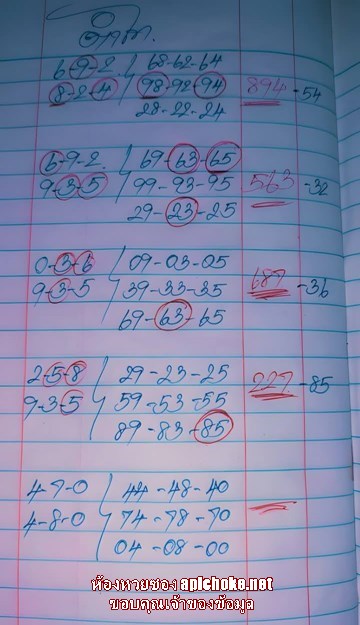 6-9-2 / 68-62-64
8-2-4 / 98-92-94 894-54
28-22-24
6-9-2 / 69-63-65
9-3-5 / 99-93-95 563-32
29-23-25
0-3-6 / 09-03-05
9-3-5 / 39-33-35 687-36
69-63-65
2-5-8 / 29-23-25
9-3-5 / 59-53-55 227-85
89-83-85
4-7-0 / 44-48-40
4-8-0 / 74-78-70
04-08-00
ห้องหวยซอง apichoke.net
ขอบคุณเจ้าของข้อมูล